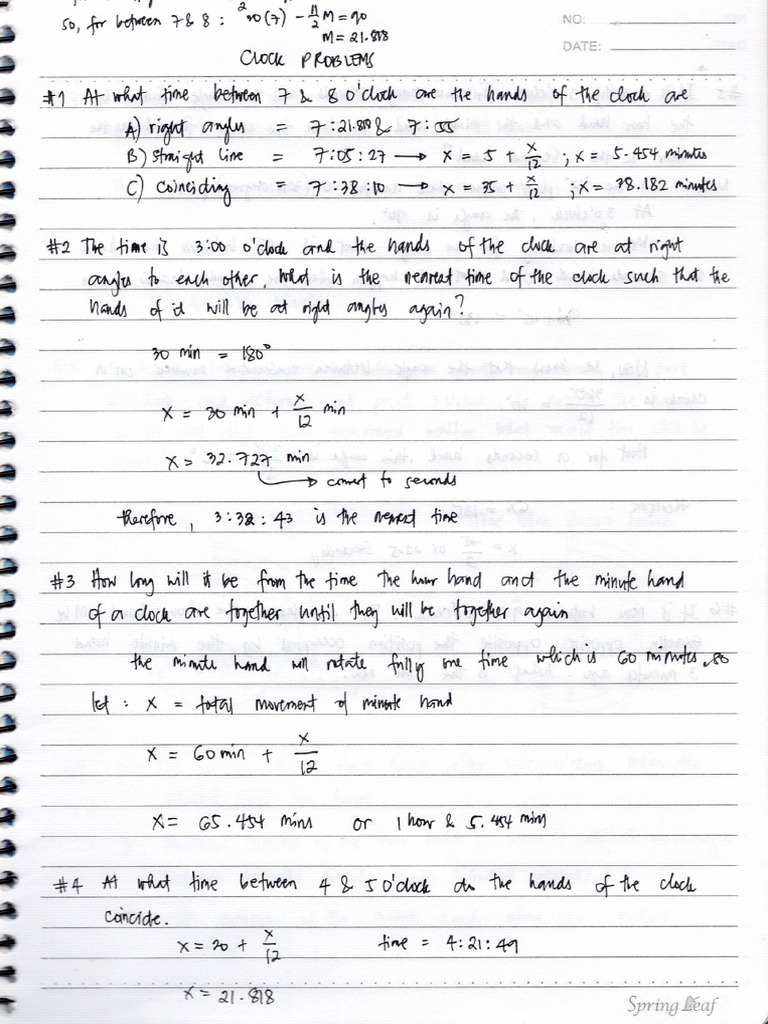 so, for between 7 & 8 : 30(7) - 11/2 M = 90
M = 21.818
NO:
DATE:
CLOCK PROBLEMS
#1 At what time between 7 & 8 o'clock are the hands of the clock are
A) right angles = 7:21.818 & 7:55
B) straight line = 7:05:27 → x = 5 + x/12 ; x = 5.454 minutes
C) coinciding = 7:38:10 → x = 35 + x/12 ; x = 38.182 minutes
#2 The time is 3:00 o'clock and the hands of the clock are at right
angles to each other, what is the nearest time of the clock such that the
hands of it will be at right angles again?
30 min = 180°
x = 30 min + x/12 min
x = 32.727 min
→ convert to seconds
therefore, 3:32:43 is the nearest time
#3 How long will it be from the time the hour hand and the minute hand
of a clock are together until they will be together again
the minute hand will rotate fully one time which is 60 minutes, so
let : x = total movement of minute hand
x = 60 min + x/12
x = 65.454 mins or 1 hour & 5.454 mins
#4 At what time between 4 & 5 o'clock do the hands of the clock
coincide.
x = 20 + x/12 time = 4:21:49
x = 21.818
Spring Leaf